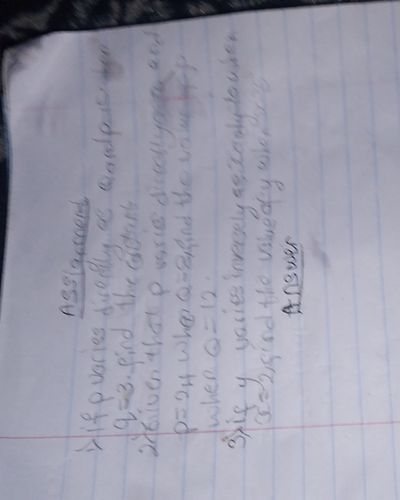 Assignment
1) if p varies directly as and p when
q=8. find the constant
2) Given that p varies directly and
p=24 when Q=8, find the value of p
when Q=12.
3) if y varies inversely as x and y when
x=2, find the value of y when
Answer